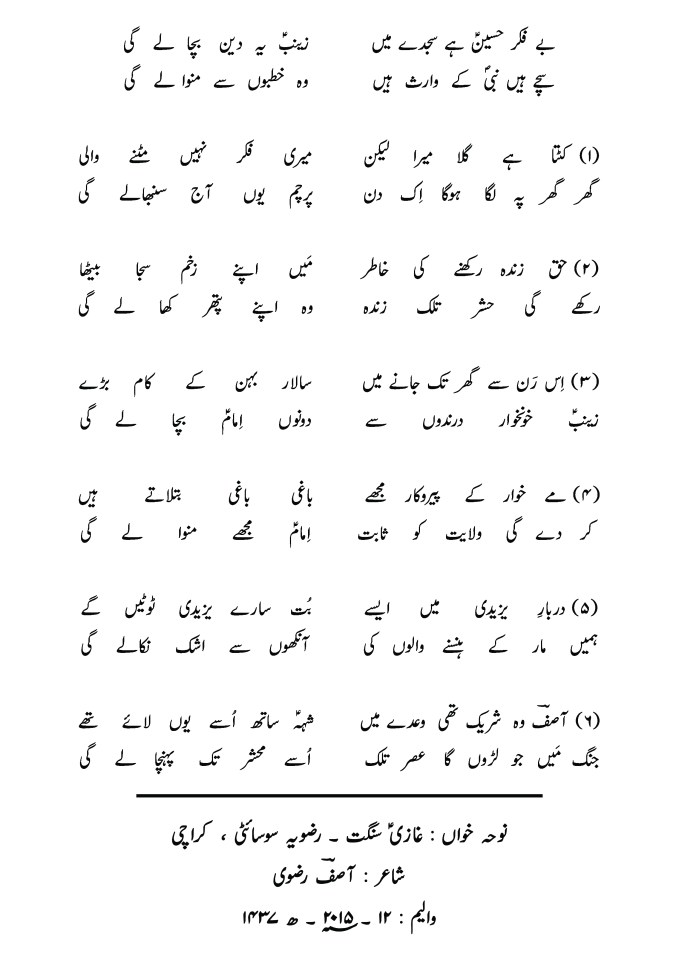 بے فکر حسینؑ ہے سجدے میں زینبؑ یہ دین بچا لے گی
سچے ہیں نبیؐ کے وارث ہیں وہ خطبوں سے منوا لے گی
(۱) کٹتا ہے گلا میرا لیکن میری فکر نہیں مٹنے والی
گھر گھر پہ لگا ہوگا اِک دن پرچم یوں آج سنبھالے گی
(۲) حق زندہ رکھنے کی خاطر مَیں اپنے زخم سجا بیٹھا
رکھے گی حشر تلک زندہ وہ اپنے پتھر کھا لے گی
(۳) اِس رَن سے گھر تک جانے میں سالار بہن کے کام بڑے
زینبؑ خونخوار درندوں سے دونوں اِمامؑ بچا لے گی
(۴) مے خوار کے پیروکار مجھے باغی باغی بتلاتے ہیں
کر دے گی ولایت کو ثابت اِمامؑ مجھے منوا لے گی
(۵) دربارِ یزیدی میں ایسے بُت سارے یزیدی ٹوٹیں گے
ہمیں مار کے ہنسنے والوں کی آنکھوں سے اشک نکالے گی
(۶) آصفؔ وہ شریک تھی وعدے میں شہہؑ ساتھ اُسے یوں لائے تھے
جنگ مَیں جو لڑوں گا عصر تلک اُسے محشر تک پہنچا لے گی
نوحہ خواں : غازیؑ سنگت ۔ رضویہ سوسائٹی ، کراچی
شاعر : آصفؔ رضوی
والیم : ۱۲ ۔ ۲۰۱۵؁ ۔ ھ ۱۴۳۷